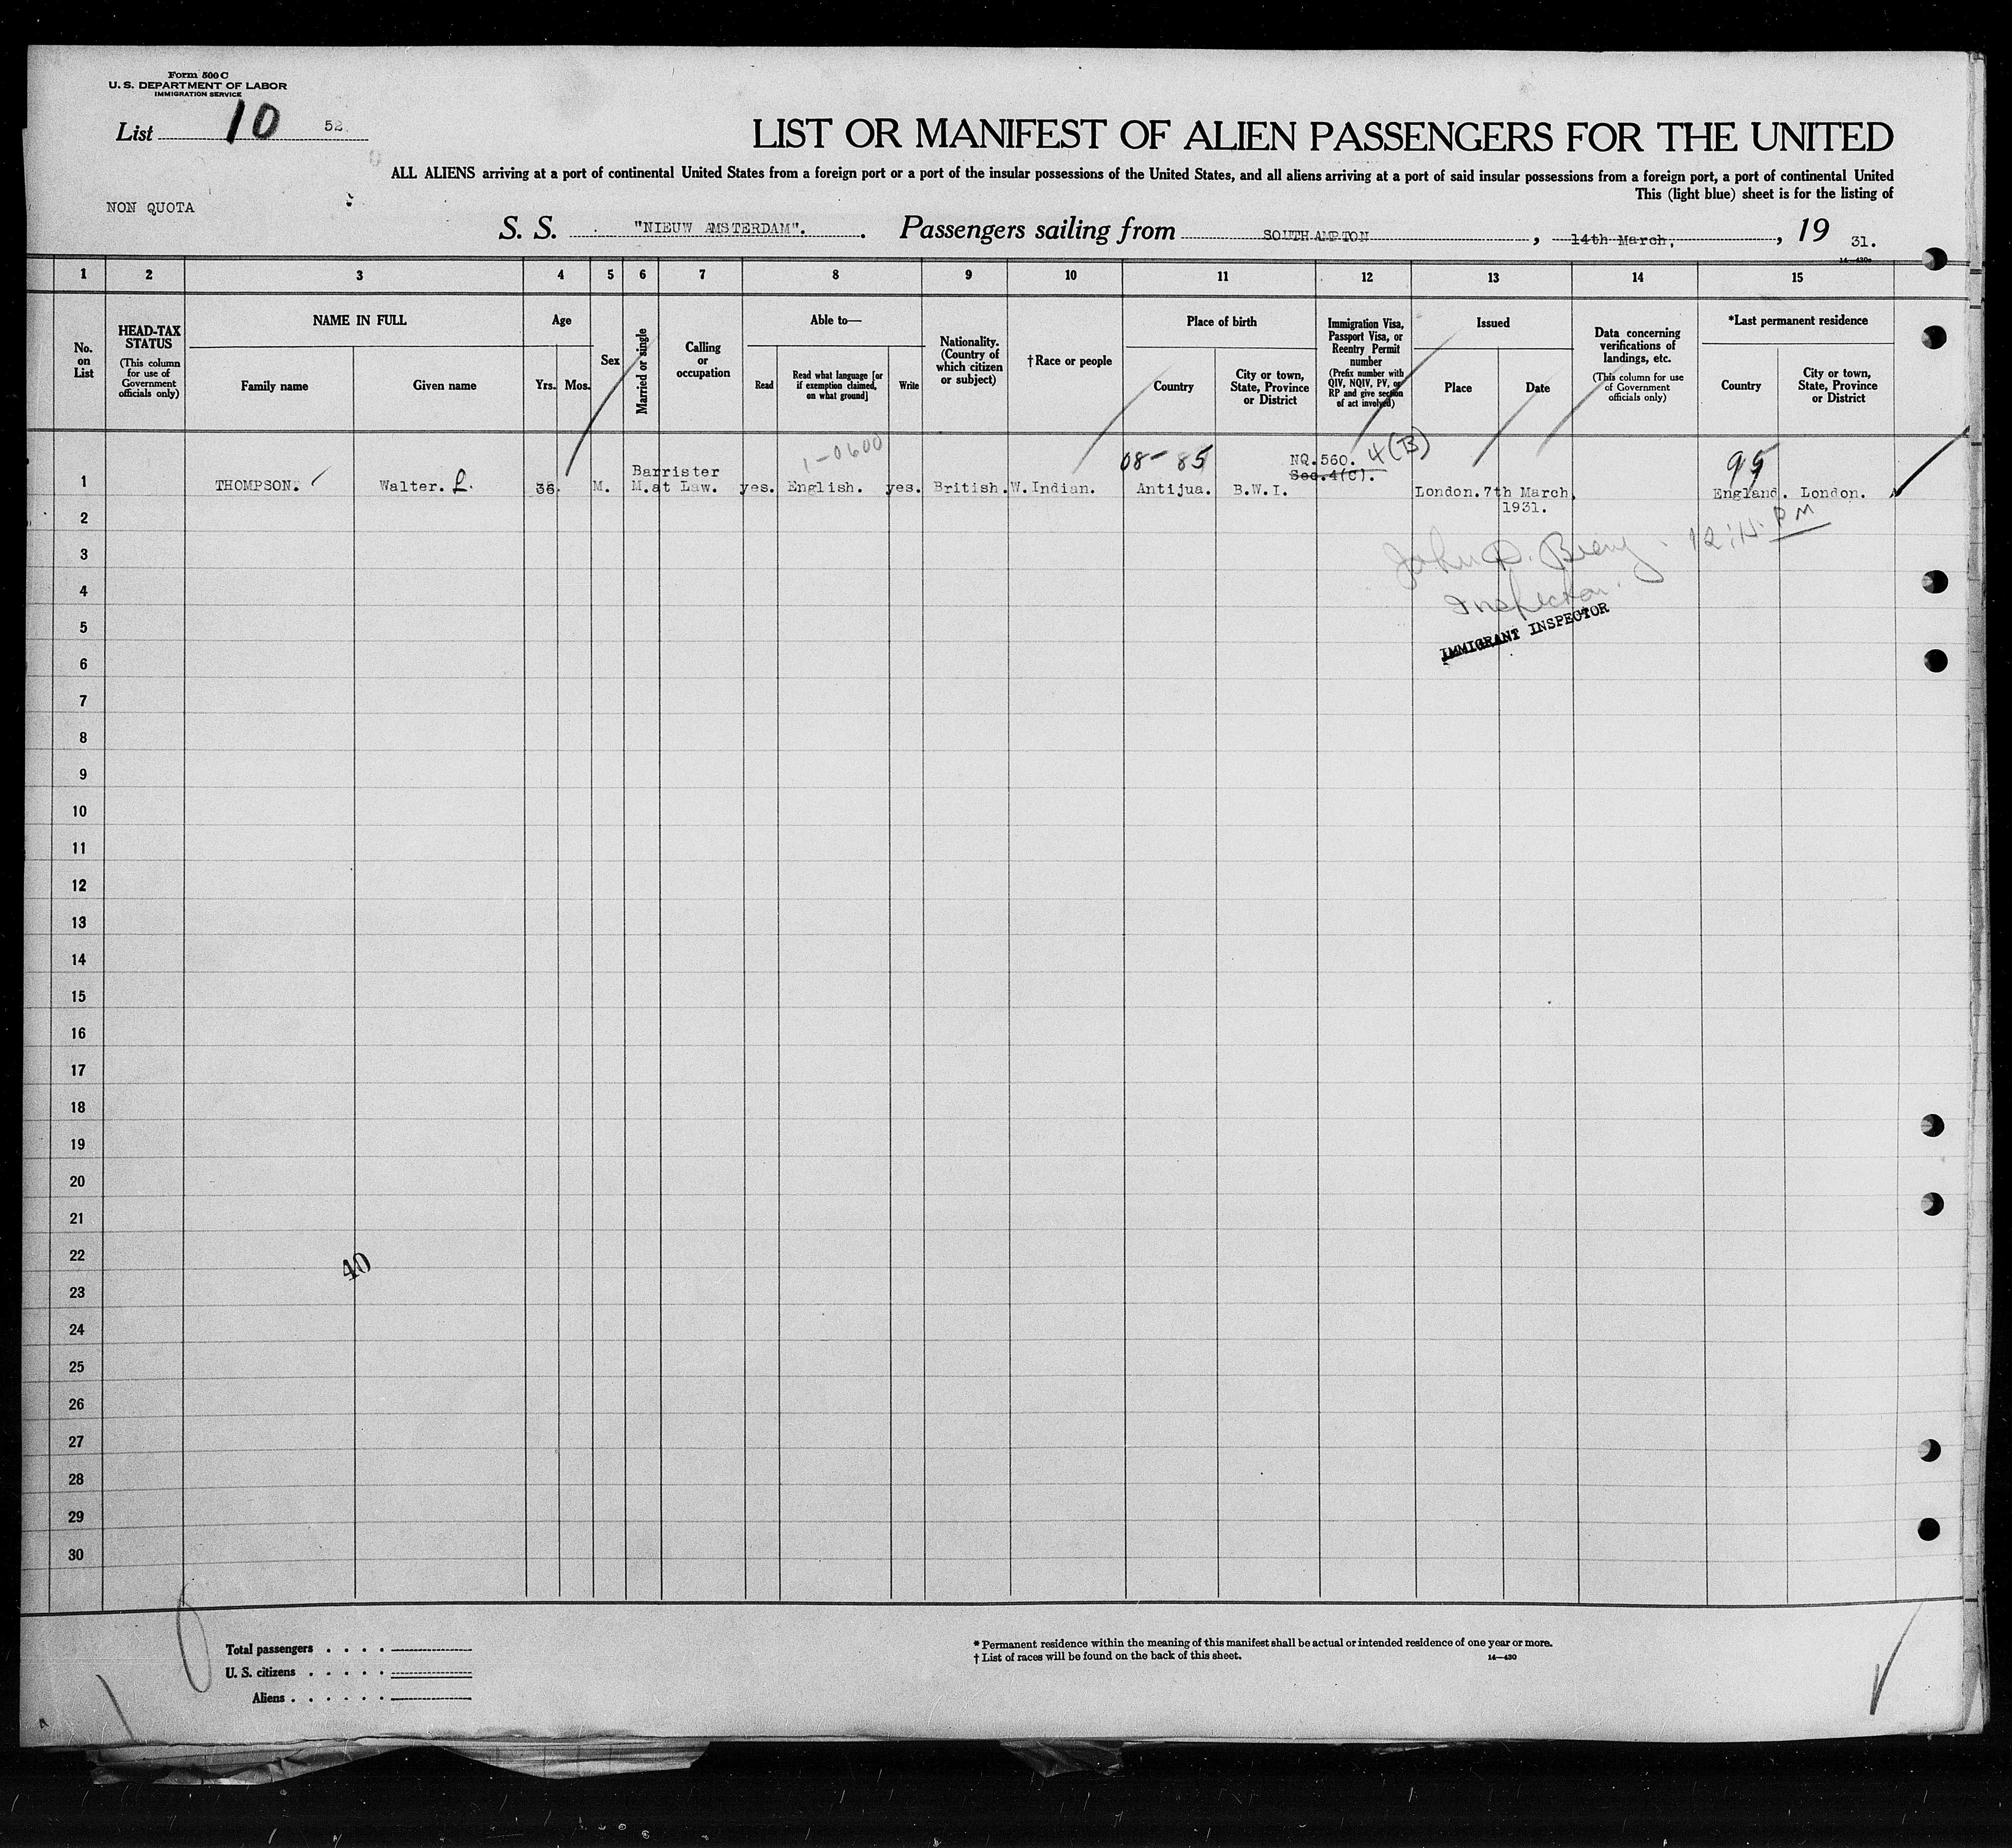 Form 500 C
U. S. DEPARTMENT OF LABOR
IMMIGRATION SERVICE
List 10 52.
LIST OR MANIFEST OF ALIEN PASSENGERS FOR THE UNITED
ALL ALIENS arriving at a port of continental United States from a foreign port or a port of the insular possessions of the United States, and all aliens arriving at a port of said insular possessions from a foreign port, a port of continental United
This (light blue) sheet is for the listing of
NON QUOTA
S. S. "NIEUW AMSTERDAM". Passengers sailing from SOUTHAMPTON, 14th March, 19 31.
14—430a
1 2 3 4 5 6 7 8 9 10 11 12 13 14 15
No. on List
HEAD-TAX STATUS
(This column for use of Government officials only)
NAME IN FULL
Family name
Given name
Age
Yrs. Mos.
Sex
Married or single
Calling or occupation
Able to—
Read
Read what language [or if exemption claimed, on what ground]
Write
Nationality. (Country of which citizen or subject)
† Race or people
Place of birth
Country
City or town, State, Province or District
Immigration Visa, Passport Visa, or Reentry Permit number
(Prefix number with QIV, NQIV, PV, or RP and give section of act involved)
Issued
Place
Date
Data concerning verifications of landings, etc.
(This column for use of Government officials only)
*Last permanent residence
Country
City or town, State, Province or District
1-0600 08-85 NQ.560. 4(B) 95
Barrister Sec.4(C).
1 THOMPSON. Walter. 36. M. M. at Law. yes. English. yes. British. W.Indian. Antijua. B.W.I. London. 7th March, England. London.
1931.
2
12:15 PM
3
John D.
4
Inspector
5
IMMIGRANT INSPECTOR
6
7
8
9
10
11
12
13
14
15
16
17
18
19
20
21
22
40
23
24
25
26
27
28
29
30
Total passengers . . . .
U. S. citizens . . . . .
Aliens . . . . . .
* Permanent residence within the meaning of this manifest shall be actual or intended residence of one year or more.
† List of races will be found on the back of this sheet. 14—430